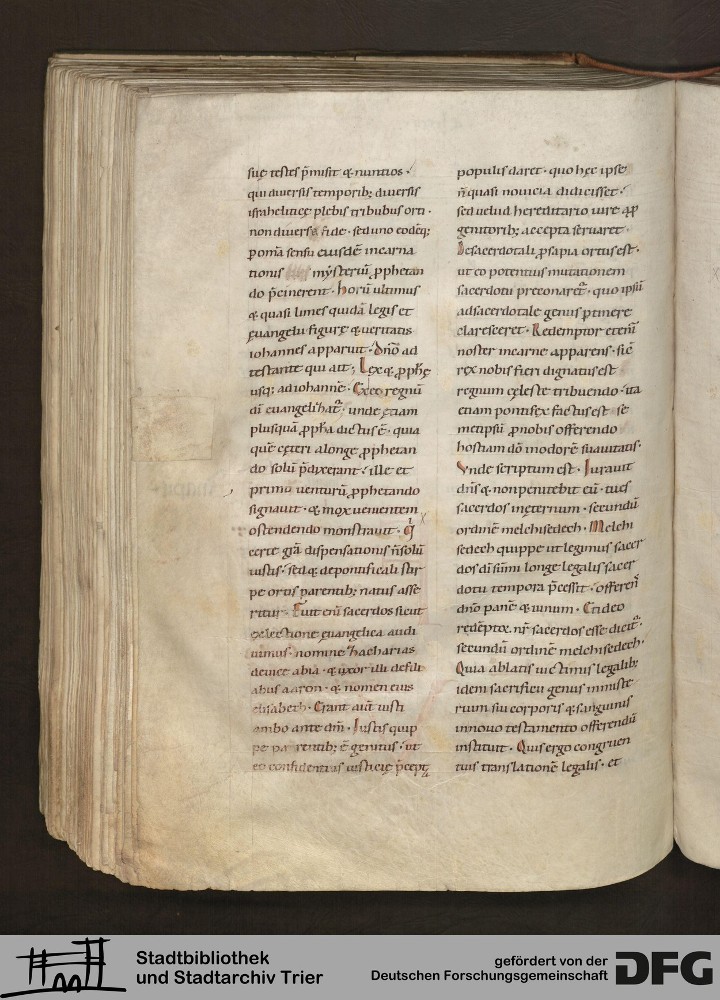 suę testes p̄misit & nuntios ·
qui diuersis temporib; diuersis
israheliticę plebis tribubus orti ·
non diuersa fide · sed uno eodēq;
ꝓ omā sensu eiusdē incarna
tionis mẏsteriū ꝓphetan
do p̄cinerent · horū ultimus
& quasi limes quidā legis et
ęuangelii figurę & ueritatis
iohannes apparuit · dn̄o ad
testante qui ait ; Lex & ꝓphę
usq; ad iohannē · Exeo regnū
dī euangelizat^r · unde etiam
plusquā ꝓph̄a dictus ē · quia
quē cęteri a longe ꝓphetan
do solū p̄dixerant · ille et
primū uenturū ꝓphetando
signauit · & mox uenientem
ostendendo monstrauit · Q^i
certe grā dispensationis n̄ solū
iustis · sed & de pontificali stir
pe ortis parentib; natus asse
ritur · Fuit enī sacerdos sicut
ex lectione ęuangelica audi
uimus · nomine zacharias
de uice abia · & uxor illi de fili
abus aaron · & nomen eius
elisabeth · Erant aut̄ iusti
ambo ante dm̄ · Iustis quip
pe parentib; ē genitus · ut
eo confidentius iusticię p̄cepta
populis daret · quo hęc ipse
n̄ quasi nouicia didicisset ·
sed uelud hereditario iure a ꝓ
genitorib; accepta seruaret ·
De sacerdotali ꝓsapia ortus est ·
ut eo potentius mutationem
sacerdotii preconaret^r · quo ipsū
ad sacerdotale genus p̱tinere
claresceret · Redemptor etenī
noster in carne apparens · sic̄
rex nobis fieri dignatus est
regnum cęleste tribuendo · ita
etiam pontifex factus est · se
metipsū ꝓ nobis offerendo
hostiam dō in odorē suauitatis ·
Vnde scriptum est · Iurauit
dn̄s & non penitebit eū · tu es
sacerdos in ęternum · secundū
ordinē melchisedech · Melchi
sedech quippe ut legimus sacer
dos dī sūmi longe legalis sacer
dotii tempora p̄cessit · offerens
dn̄o panē & uinum · Et ideo
redēptor nr̄ sacerdos esse dicit^r ·
secundū ordinē melchisedech ·
Quia ablatis uictimis legalib;
idem sacrificii genus in miste
rium sui corporis & sanguinis
in nouo testamento offerendū
instituit · Quis ergo congruen
tius translationē legalis · et
Stadtbibliothek
und Stadtarchiv Trier
gefördert von der
Deutschen Forschungsgemeinschaft
DFG